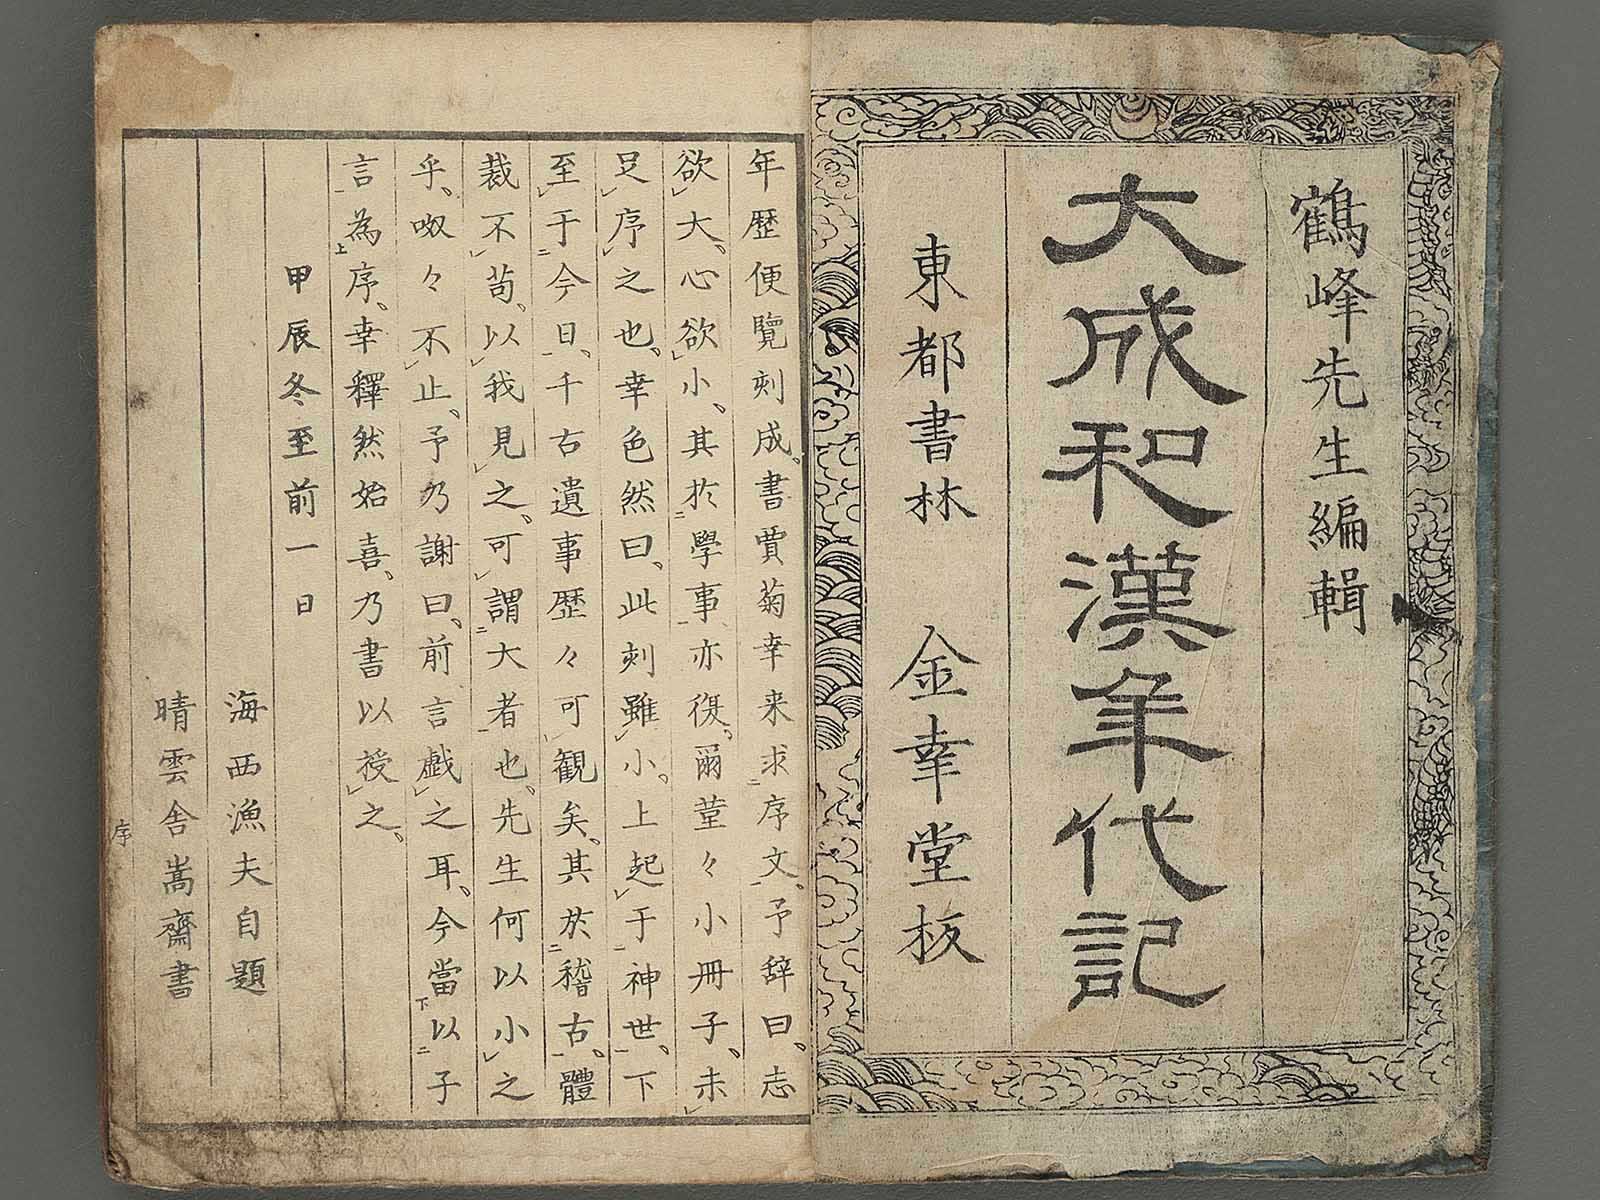 鶴峰先生編輯
大成和漢年代記
東都書林 金幸堂板
年歴便覽刻成書賈菊幸来求序文予辞曰志
欲大心欲小其於學事亦復爾菫々小冊子未
足序之也幸色然曰此刻雖小上起于神世下
至于今日千古遺事歴々可観矣其於稽古體
裁不苟以我見之可謂大者也先生何以小之
乎呶々不止予乃謝曰前言戯之耳今當以子
言為序幸釋然始喜乃書以授之
甲辰冬至前一日
海西漁夫自題
晴雲舎嵩齋書
序